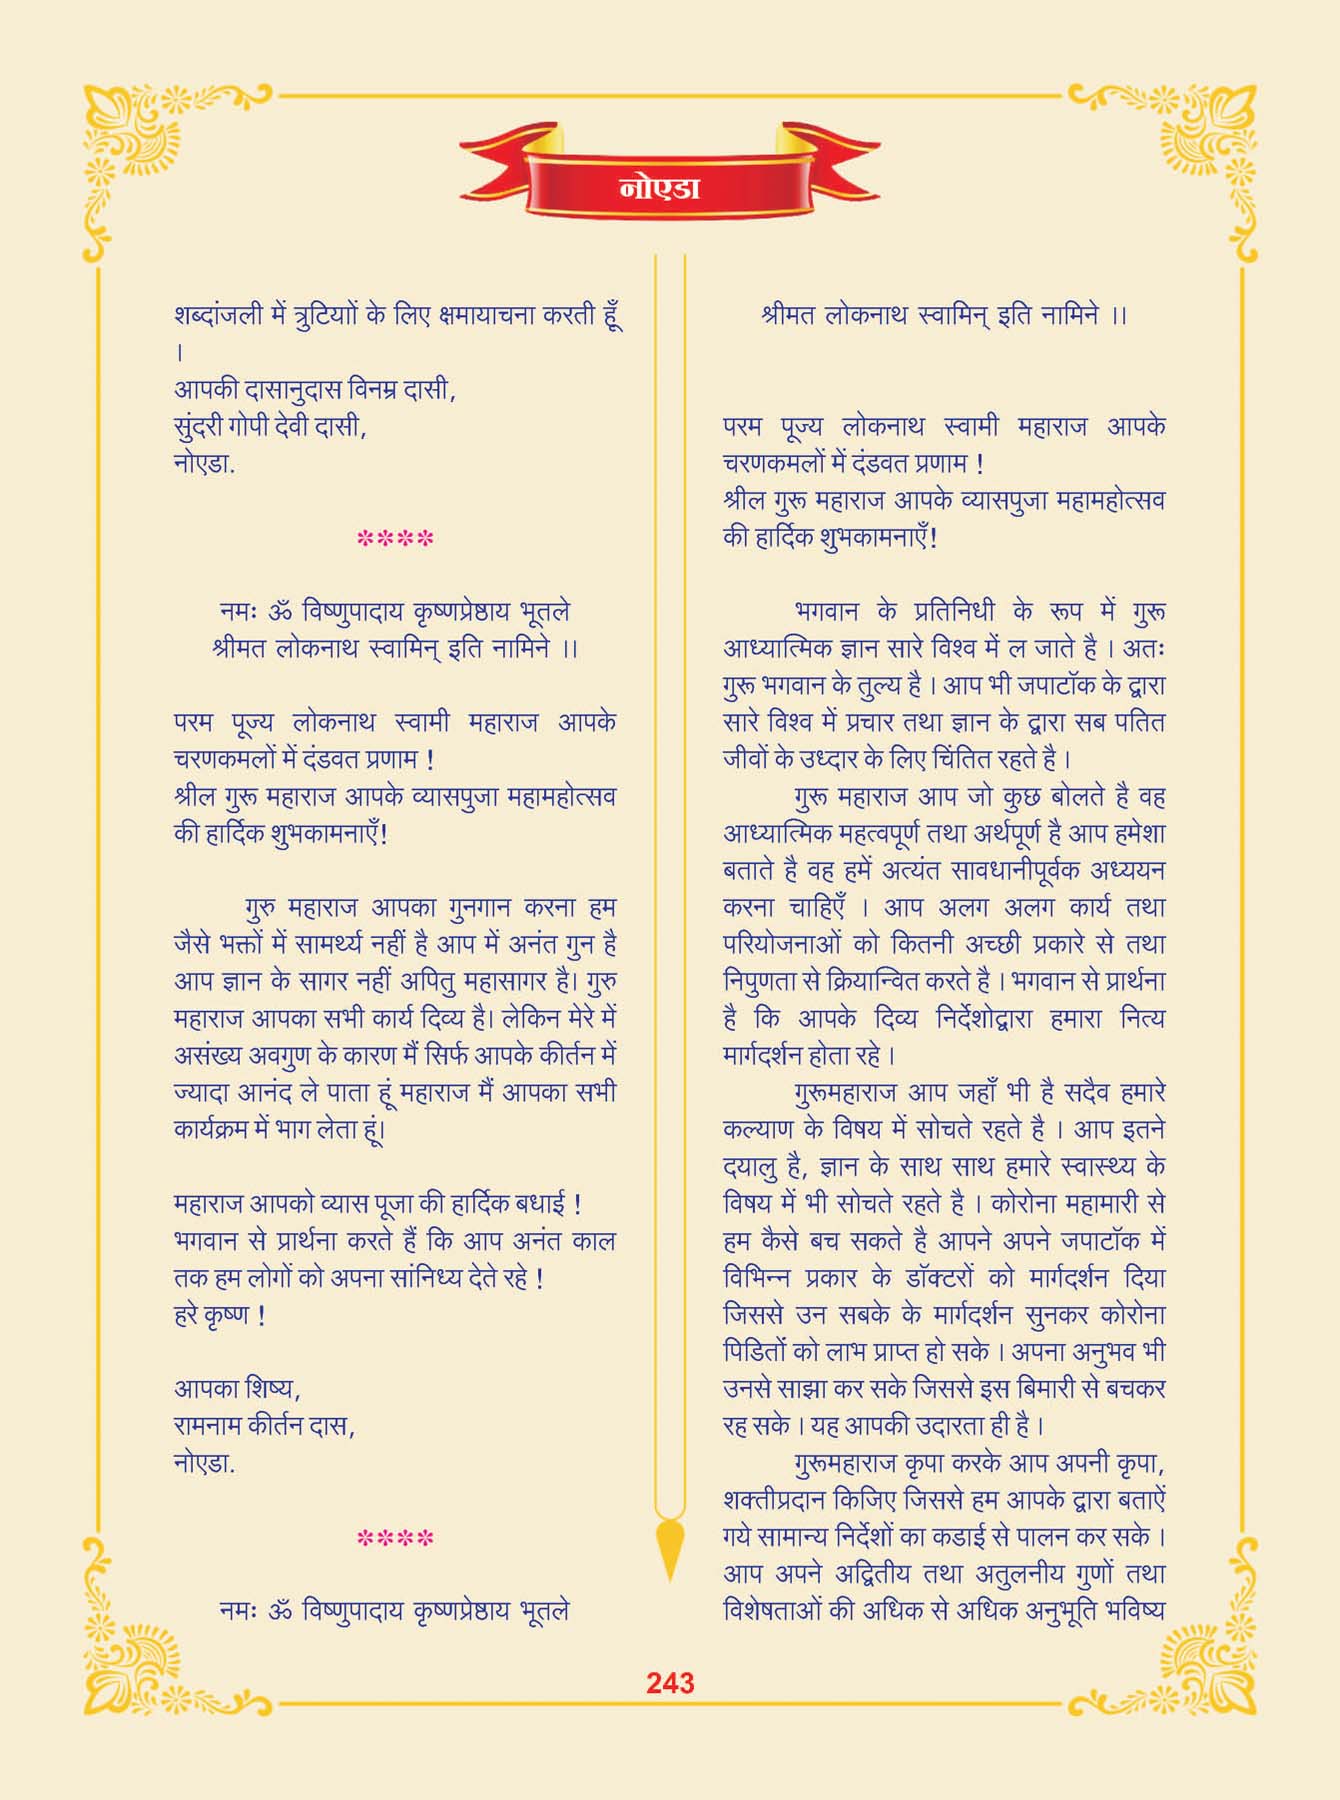 नोएडा
शब्दांजली में त्रुटियाों के लिए क्षमायाचना करती हूँ
।
आपकी दासानुदास विनम्र दासी,
सुंदरी गोपी देवी दासी,
नोएडा.
****
नमः ॐ विष्णुपादाय कृष्णप्रेष्ठाय भूतले
श्रीमत लोकनाथ स्वामिन् इति नामिने ।।
परम पूज्य लोकनाथ स्वामी महाराज आपके
चरणकमलों में दंडवत प्रणाम !
श्रील गुरू महाराज आपके व्यासपुजा महामहोत्सव
की हार्दिक शुभकामनाएँ!
गुरु महाराज आपका गुनगान करना हम
जैसे भक्तों में सामर्थ्य नहीं है आप में अनंत गुन है
आप ज्ञान के सागर नहीं अपितु महासागर है। गुरु
महाराज आपका सभी कार्य दिव्य है। लेकिन मेरे में
असंख्य अवगुण के कारण मैं सिर्फ आपके कीर्तन में
ज्यादा आनंद ले पाता हूं महाराज मैं आपका सभी
कार्यक्रम में भाग लेता हूं।
महाराज आपको व्यास पूजा की हार्दिक बधाई !
भगवान से प्रार्थना करते हैं कि आप अनंत काल
तक हम लोगों को अपना सांनिध्य देते रहे !
हरे कृष्ण !
आपका शिष्य,
रामनाम कीर्तन दास,
नोएडा.
****
नमः ॐ विष्णुपादाय कृष्णप्रेष्ठाय भूतले
श्रीमत लोकनाथ स्वामिन् इति नामिने ।।
परम पूज्य लोकनाथ स्वामी महाराज आपके
चरणकमलों में दंडवत प्रणाम !
श्रील गुरू महाराज आपके व्यासपुजा महामहोत्सव
की हार्दिक शुभकामनाएँ!
भगवान के प्रतिनिधी के रूप में गुरू
आध्यात्मिक ज्ञान सारे विश्व में ल जाते है । अतः
गुरू भगवान के तुल्य है । आप भी जपाटॉक के द्वारा
सारे विश्व में प्रचार तथा ज्ञान के द्वारा सब पतित
जीवों के उध्दार के लिए चिंतित रहते है ।
गुरू महाराज आप जो कुछ बोलते है वह
आध्यात्मिक महत्वपूर्ण तथा अर्थपूर्ण है आप हमेशा
बताते है वह हमें अत्यंत सावधानीपूर्वक अध्ययन
करना चाहिएँ । आप अलग अलग कार्य तथा
परियोजनाओं को कितनी अच्छी प्रकारे से तथा
निपुणता से क्रियान्वित करते है । भगवान से प्रार्थना
है कि आपके दिव्य निर्देशोद्वारा हमारा नित्य
मार्गदर्शन होता रहे ।
गुरूमहाराज आप जहाँ भी है सदैव हमारे
कल्याण के विषय में सोचते रहते है । आप इतने
दयालु है, ज्ञान के साथ साथ हमारे स्वास्थ्य के
विषय में भी सोचते रहते है । कोरोना महामारी से
हम कैसे बच सकते है आपने अपने जपाटॉक में
विभिन्न प्रकार के डॉक्टरों को मार्गदर्शन दिया
जिससे उन सबके के मार्गदर्शन सुनकर कोरोना
पिडितों को लाभ प्राप्त हो सके । अपना अनुभव भी
उनसे साझा कर सके जिससे इस बिमारी से बचकर
रह सके । यह आपकी उदारता ही है ।
गुरूमहाराज कृपा करके आप अपनी कृपा,
शक्तीप्रदान किजिए जिससे हम आपके द्वारा बताऐं
गये सामान्य निर्देशों का कडाई से पालन कर सके ।
आप अपने अद्वितीय तथा अतुलनीय गुणों तथा
विशेषताओं की अधिक से अधिक अनुभूति भविष्य
243